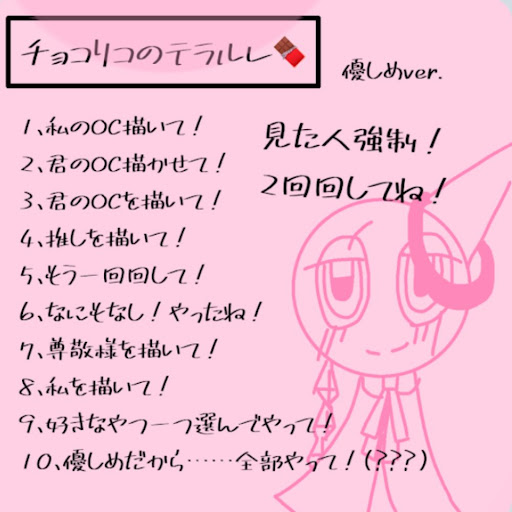 チョコリコのテラルレ🍫
優しめver.
見た人強制！
2回回してね！
1、私のOC描いて！
2、君のOC描かせて！
3、君のOCを描いて！
4、推しを描いて！
5、そう一回回して！
6、なにそなし！やったね！
7、尊敬様を描いて！
8、私を描いて！
9、好きなやつ一つ選んでやって！
10、優しめだから……全部やって！(???)